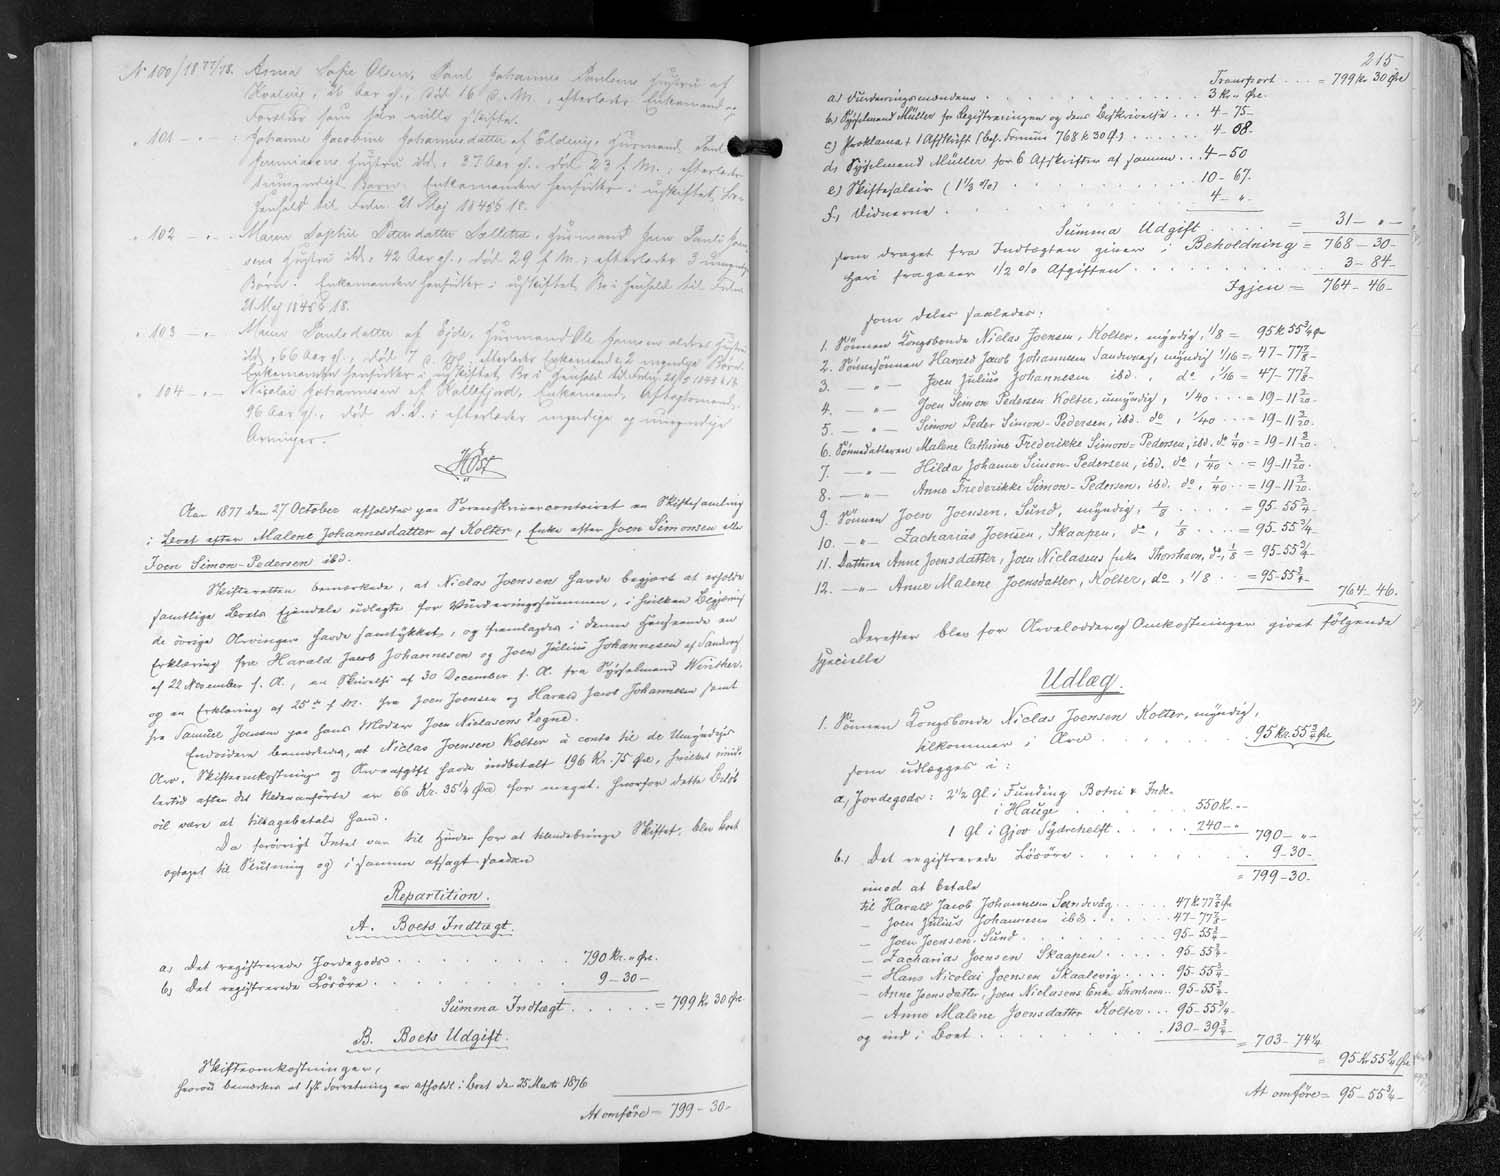 N 100/1877/78. Anna Sofie Olsen, Poul Johannes Poulsens Hustru af
Kvalvig, 26 Aar gl., død 16 d. M., efterlader Enkemand og
Forældre som selv ville skifte.
" 101 - " - Johanne Jacobine Johannesdatter af Eldevig, Huusmand Poul
Hustru ibd., 37 Aar gl., død 23 f. M.; efterlader
umyndige Børn. Enkemanden hensidder i uskiftet Bo i
Henhold til Frdn. 21 Maj 1845 § 18.
" 102 - " - Maren Sophie Petersdatter Selletræ, Huusmand Jens Pauli
Hustru ibd., 42 Aar gl., død 29 f. M.; efterlader 3 umyndige
Børn. Enkemanden hensidder i uskiftet Bo i Henhold til Frdn.
21 Maj 1845 § 18.
" 103 - " - Maren Poulsdatter af Ejde, Huusmand Ole Hansen alderst Hustru
ibd., 66 Aar gl., død 7 d. M.; efterlader Enkemand & 2 myndige Børn.
Enkemanden hensidder i uskiftet Bo i Henhold til Frdng. 21/5 1845 § 18
" 104 - " - Nicolai Johannesen af Kollefjord, Enkemand, Aftægtsmand,
96 Aar gl., død D. D.; efterlader myndige og umyndige
Arvinger.
Høst
Aar 1877 den 27 October afholdtes paa Sorenskrivercontoiret en Skiftesamling
i Boet efter Malene Johannesdatter af Kolter, Enke efter Joen Simonsen eller
Joen Simon-Pedersen ibd.
Skifteretten bemærkede, at Niclas Joensen havde begjært at erholde
samtlige Boets Ejendele udlagte for Vurderingssummen, i hvilken Begjæring
de øvrige Arvinger havde samtykket, og fremlagdes i denne Henseende en
Erklæring fra Harald Jacob Johannesen og Joen Julius Johannesen af Sandevaag
af 22 November f. A., en Skrivelse af 30 December f. A. fra Sysselmand Winther,
og en Erklæring af 25de f. M. fra Joen Joensen og Harald Jacob Johannesen samt
fra Samuel Joensen paa hans Moder Joen Niclasens Vegne.
Endvidere bemærkedes, at Niclas Joensen Kolter à conto til de Umyndiges
Arv, Skifteomkostninger og Arveafgift havde indbetalt 196 Kr. 75 Øre, hvilket imid-
lertid efter det Nedenanførte er 66 Kr. 35 1/4 Øre for meget, hvorfor dette Beløb
vil være at tilbagebetale ham.
Da forøvrigt Intet var til Hinder for at tilendebringe Skiftet, blev Boet
optaget til Slutning og i samme afsagt saadan
Repartition.
A. Boets Indtægt.
a) Det registrerede Jordegods . . . . . . 790 Kr. " Øre.
b) Det registrerede Lösöre . . . . . . 9 - 30 -
Summa Indtægt . . . . . = 799 Kr 30 Øre
B. Boets Udgift.
Skifteomkostninger,
hvorved bemærkes at Forretning er afholdt i Boet den 25 Marts 1876
At omföre = 799 - 30 -
215
Transport . . . = 799 Kr 30 Øre
a) Vurderingsmændene . . . . . . 3 Kr " Øre.
b) Sysselmand Müller for Registreringen og dens Beskrivelse . . . 4 - 75 -
c) Proklama + 1 Afskrift (beh. Formue 768 k 30 Ø.) . . . . . . 4 - 08 -
d) Sysselmand Müller for 6 Afskrifter af samme . . . 4 - 50
e) Skiftesalair (1 1/3 %) . . . . . . 10 - 67.
f) Vidnerne . . . . . . 4 - " -
Summa Udgift . . . . = 31 - " -
som draget fra Indtægten giver i Beholdning = 768 - 30 -
heri fragaaer 1/2 % Afgiften . . . . . . 3 - 84 -
Igjen = 764 - 46 -
som deles saaledes:
1. Sønnen Kongsbonde Niclas Joensen, Kolter, myndig, 1/8 = 95 K 55 3/4 Øre
2. Sønnesønnen Harald Jacob Johannesen Sandevaag, myndig 1/16 = 47 - 77 7/8 -
3. - " - Joen Julius Johannesen ibd., do, 1/16 = 47 - 77 7/8 -
4. - " - Joen Simon Pedersen Kolter, umyndig, 1/40 . . . = 19 - 11 3/20 -
5. - " - Simon Peder Simon-Pedersen, ibd. do, 1/40 . . . = 19 - 11 3/20 -
6. Sønnedatteren Malene Cathrine Frederikke Simon-Pedersen, ibd. do 1/40 = 19 - 11 3/20 -
7. - " - Hilda Johanne Simon-Pedersen, ibd. do, 1/40 . . = 19 - 11 3/20 -
8. - " - Anne Frederikke Simon-Pedersen, ibd. do, 1/40 . . = 19 - 11 3/20 -
9. Sønnen Joen Joensen, Sund, myndig, 1/8 . . . . . = 95 - 55 3/4 -
10. - " - Zacharias Joensen, Skaapen, do, 1/8 . . . = 95 - 55 3/4 -
11. Datteren Anne Joensdatter, Joen Niclasens Enke Thorshavn, do, 1/8 = 95 - 55 3/4 -
12. - " - Anne Malene Joensdatter, Kolter, do, 1/8 . . = 95 - 55 3/4 -
764 - 46.
Derefter blev for Arvelodder og Omkostninger givet følgende
specielle
Udlæg.
1. Sønnen Kongsbonde Niclas Joensen Kolter, myndig,
tilkommer i Arv . . . . . . . 95 Kr. 55 3/4 Øre
som udlægges i:
a) Jordegods: 2 1/2 Gl i Funding Botni & Inde-
i Hauge . . . . . . 550 Kr. " -
1 Gl i Gjov Sydrehelft . . . . . 240 - " 790 - " -
b.) Det registrerede Lösöre . . . . . . 9 - 30 -
= 799 - 30 -
imod at betale
til Harald Jacob Johannesen Sandevåg . . . . . 47 K 77 7/8 Øre
- Joen Julius Johannesen ibd . . . . . 47 - 77 7/8 -
- Joen Joensen, Sund . . . . . . 95 - 55 3/4 -
- Zacharias Joensen Skaapen . . . . . 95 - 55 3/4 -
- Hans Nicolai Joensen Skaalevig . . . . 95 - 55 3/4 -
- Anne Joensdatter, Joen Niclasens Enke Thorshavn . . 95 - 55 3/4 -
- Anne Malene Joensdatter Kolter . . . 95 - 55 3/4 -
og ind i Boet . . . . . . 130 - 39 3/4 -
= 703 - 74 1/4
= 95 Kr 55 3/4 Øre
At omföre = 95 - 55 3/4 -